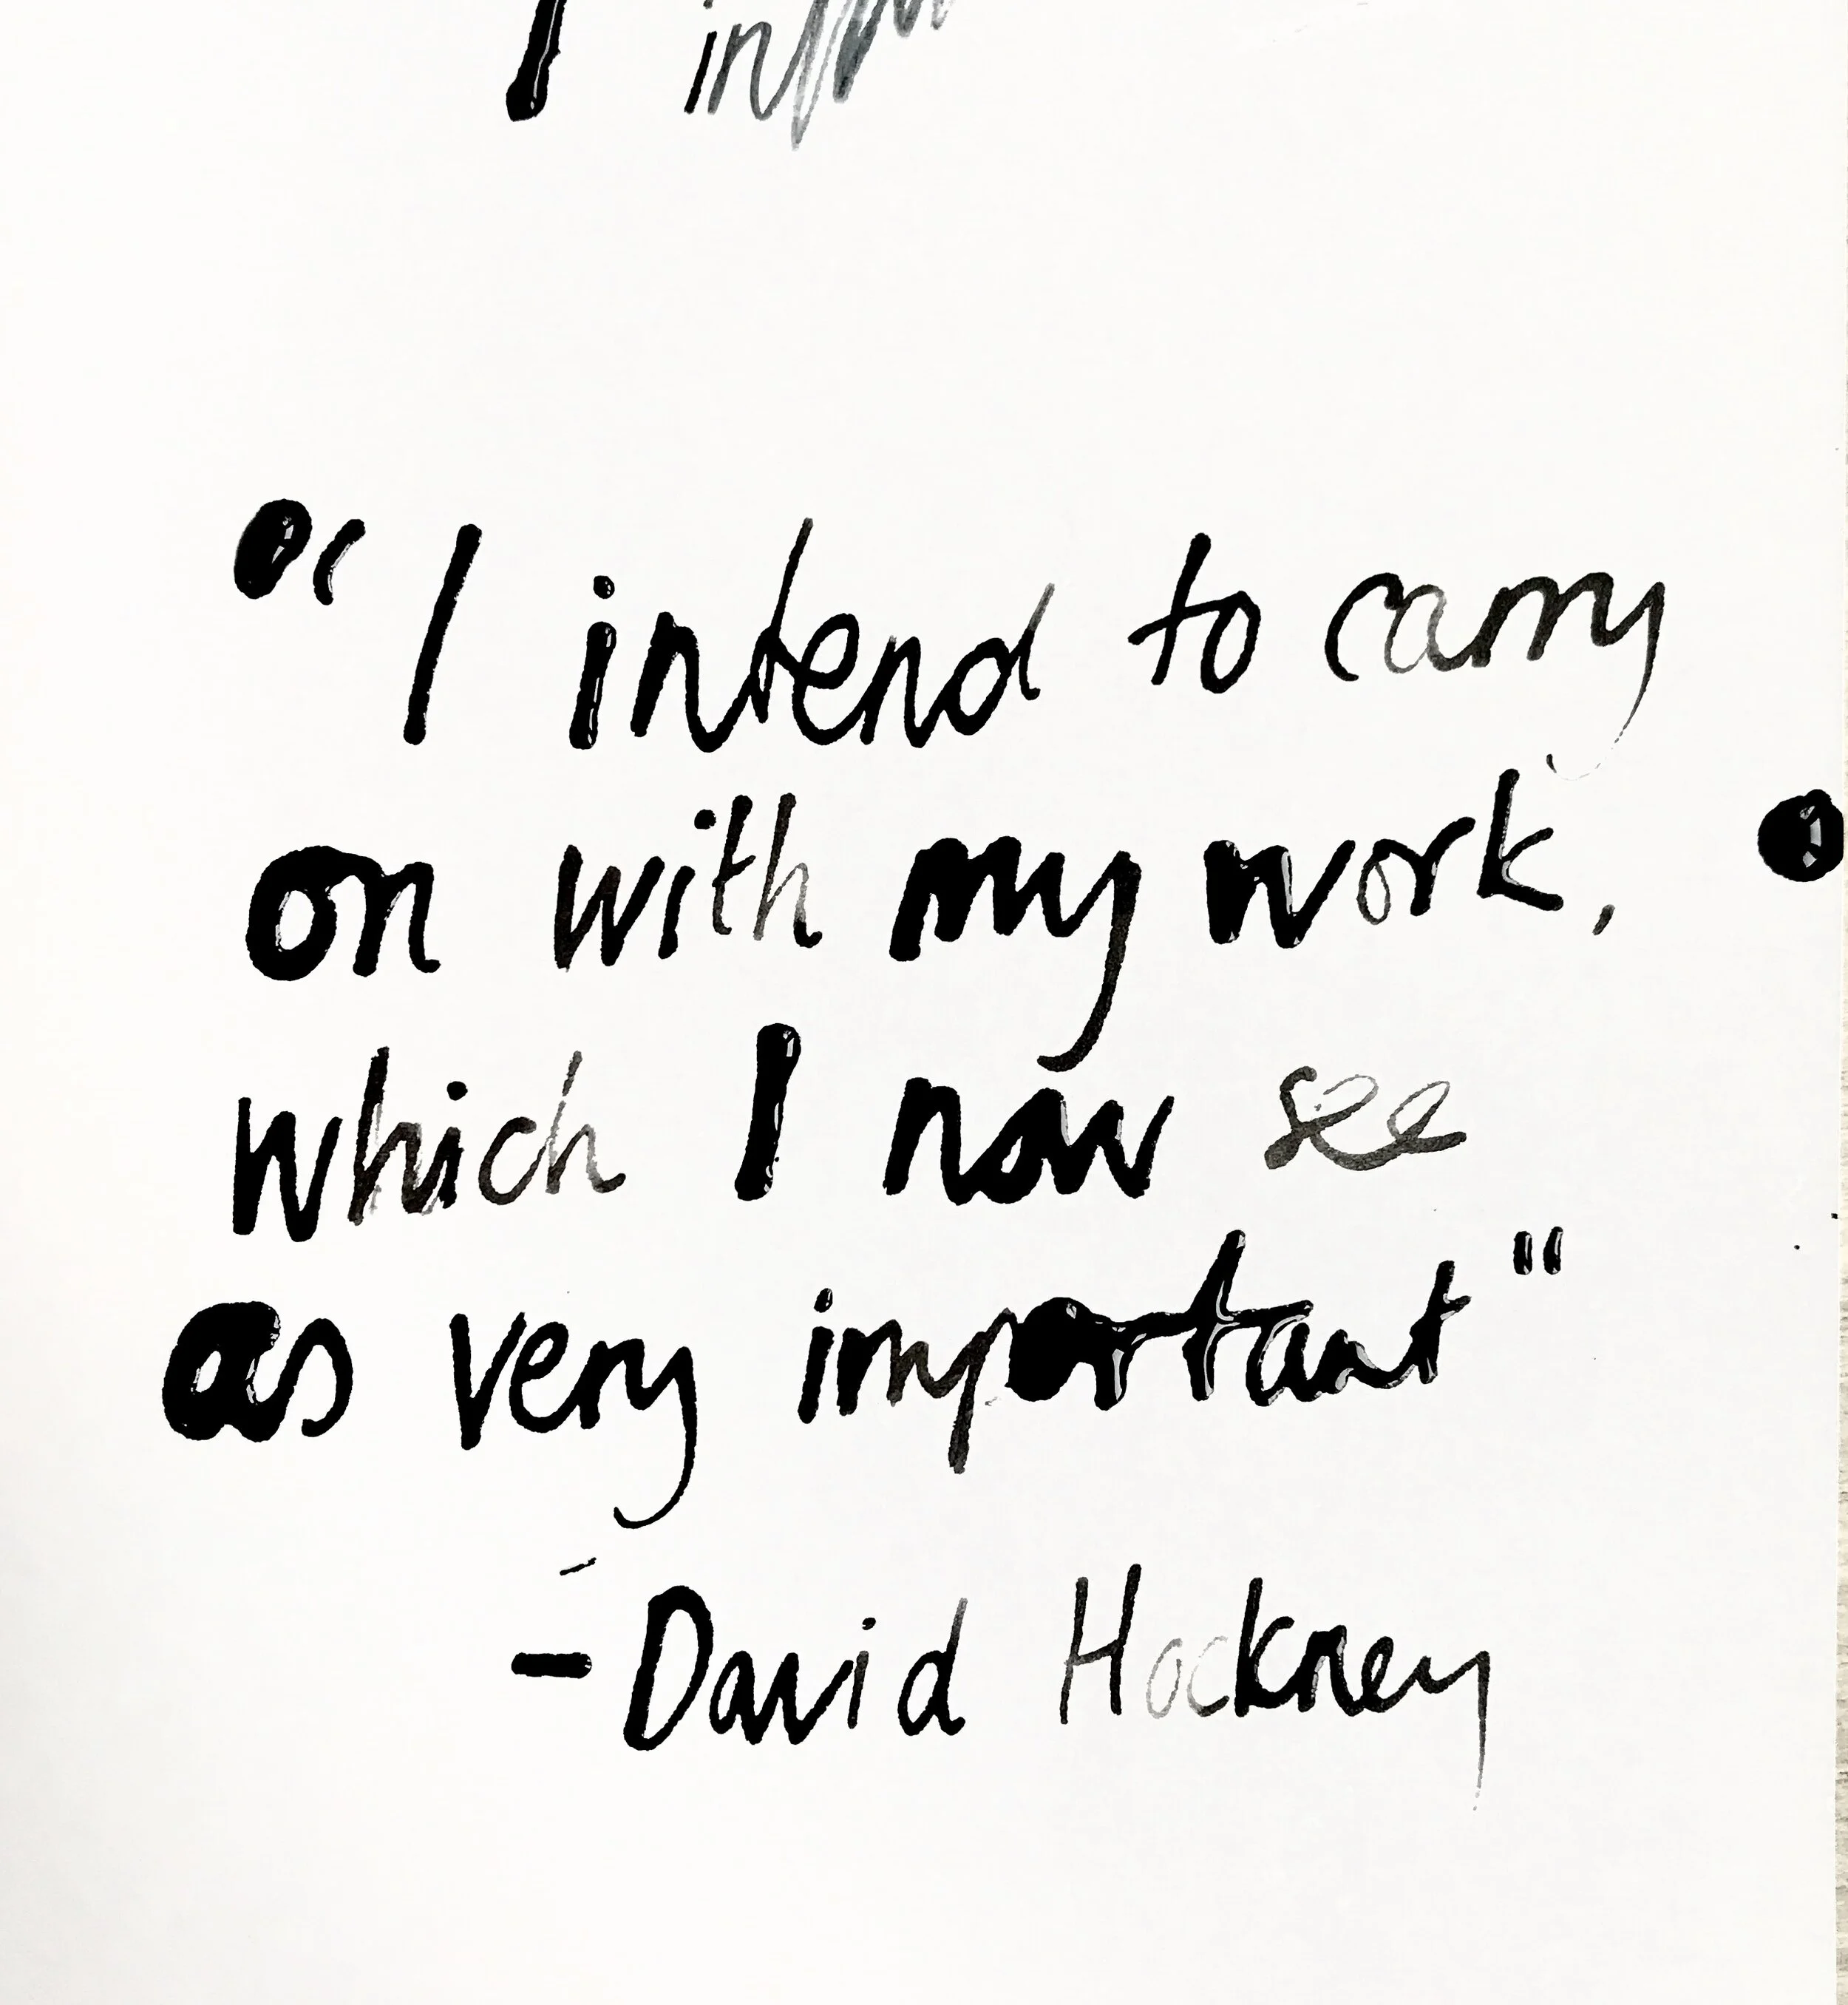 I
"I intend to carry
on with my work,
which I now see
as very important"
- David Hockney